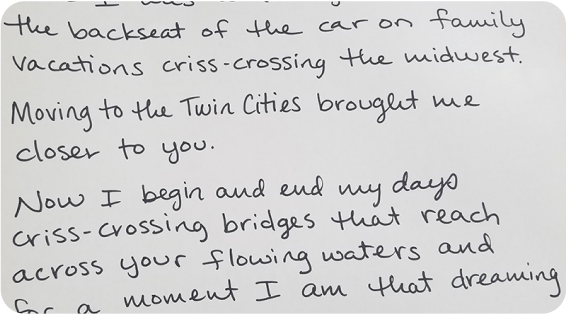 the backseat of the car on family
vacations criss-crossing the midwest.
Moving to the Twin Cities brought me
closer to you.
Now I begin and end my days
criss-crossing bridges that reach
across your flowing waters and
for a moment I am that dreaming